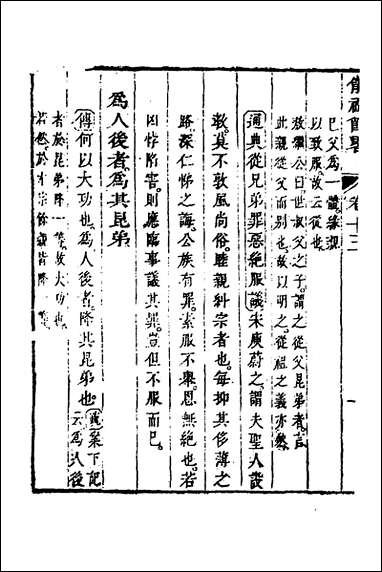 儀禮節畧 卷十三 一
己父爲一體緣親
以致服故云從也
敖繼公曰世叔父之子謂之從父昆弟者言
此親從父而別也故以明之從祖之義亦然
通典從兄弟罪惡絶服議朱庾蔚之謂夫聖人設
教莫不敦風尚俗睦親糾宗者也每抑其侈薄之
路深仁悌之誨公族有罪素服不舉恩無絶也若
凶悖陷害則應臨事議其罪豈但不服而已
爲人後者爲其昆弟
傳何以大功也爲人後者降其昆弟也 案下記云爲人後
者於昆弟降一等故大功也
若然於本宗餘親皆降一等